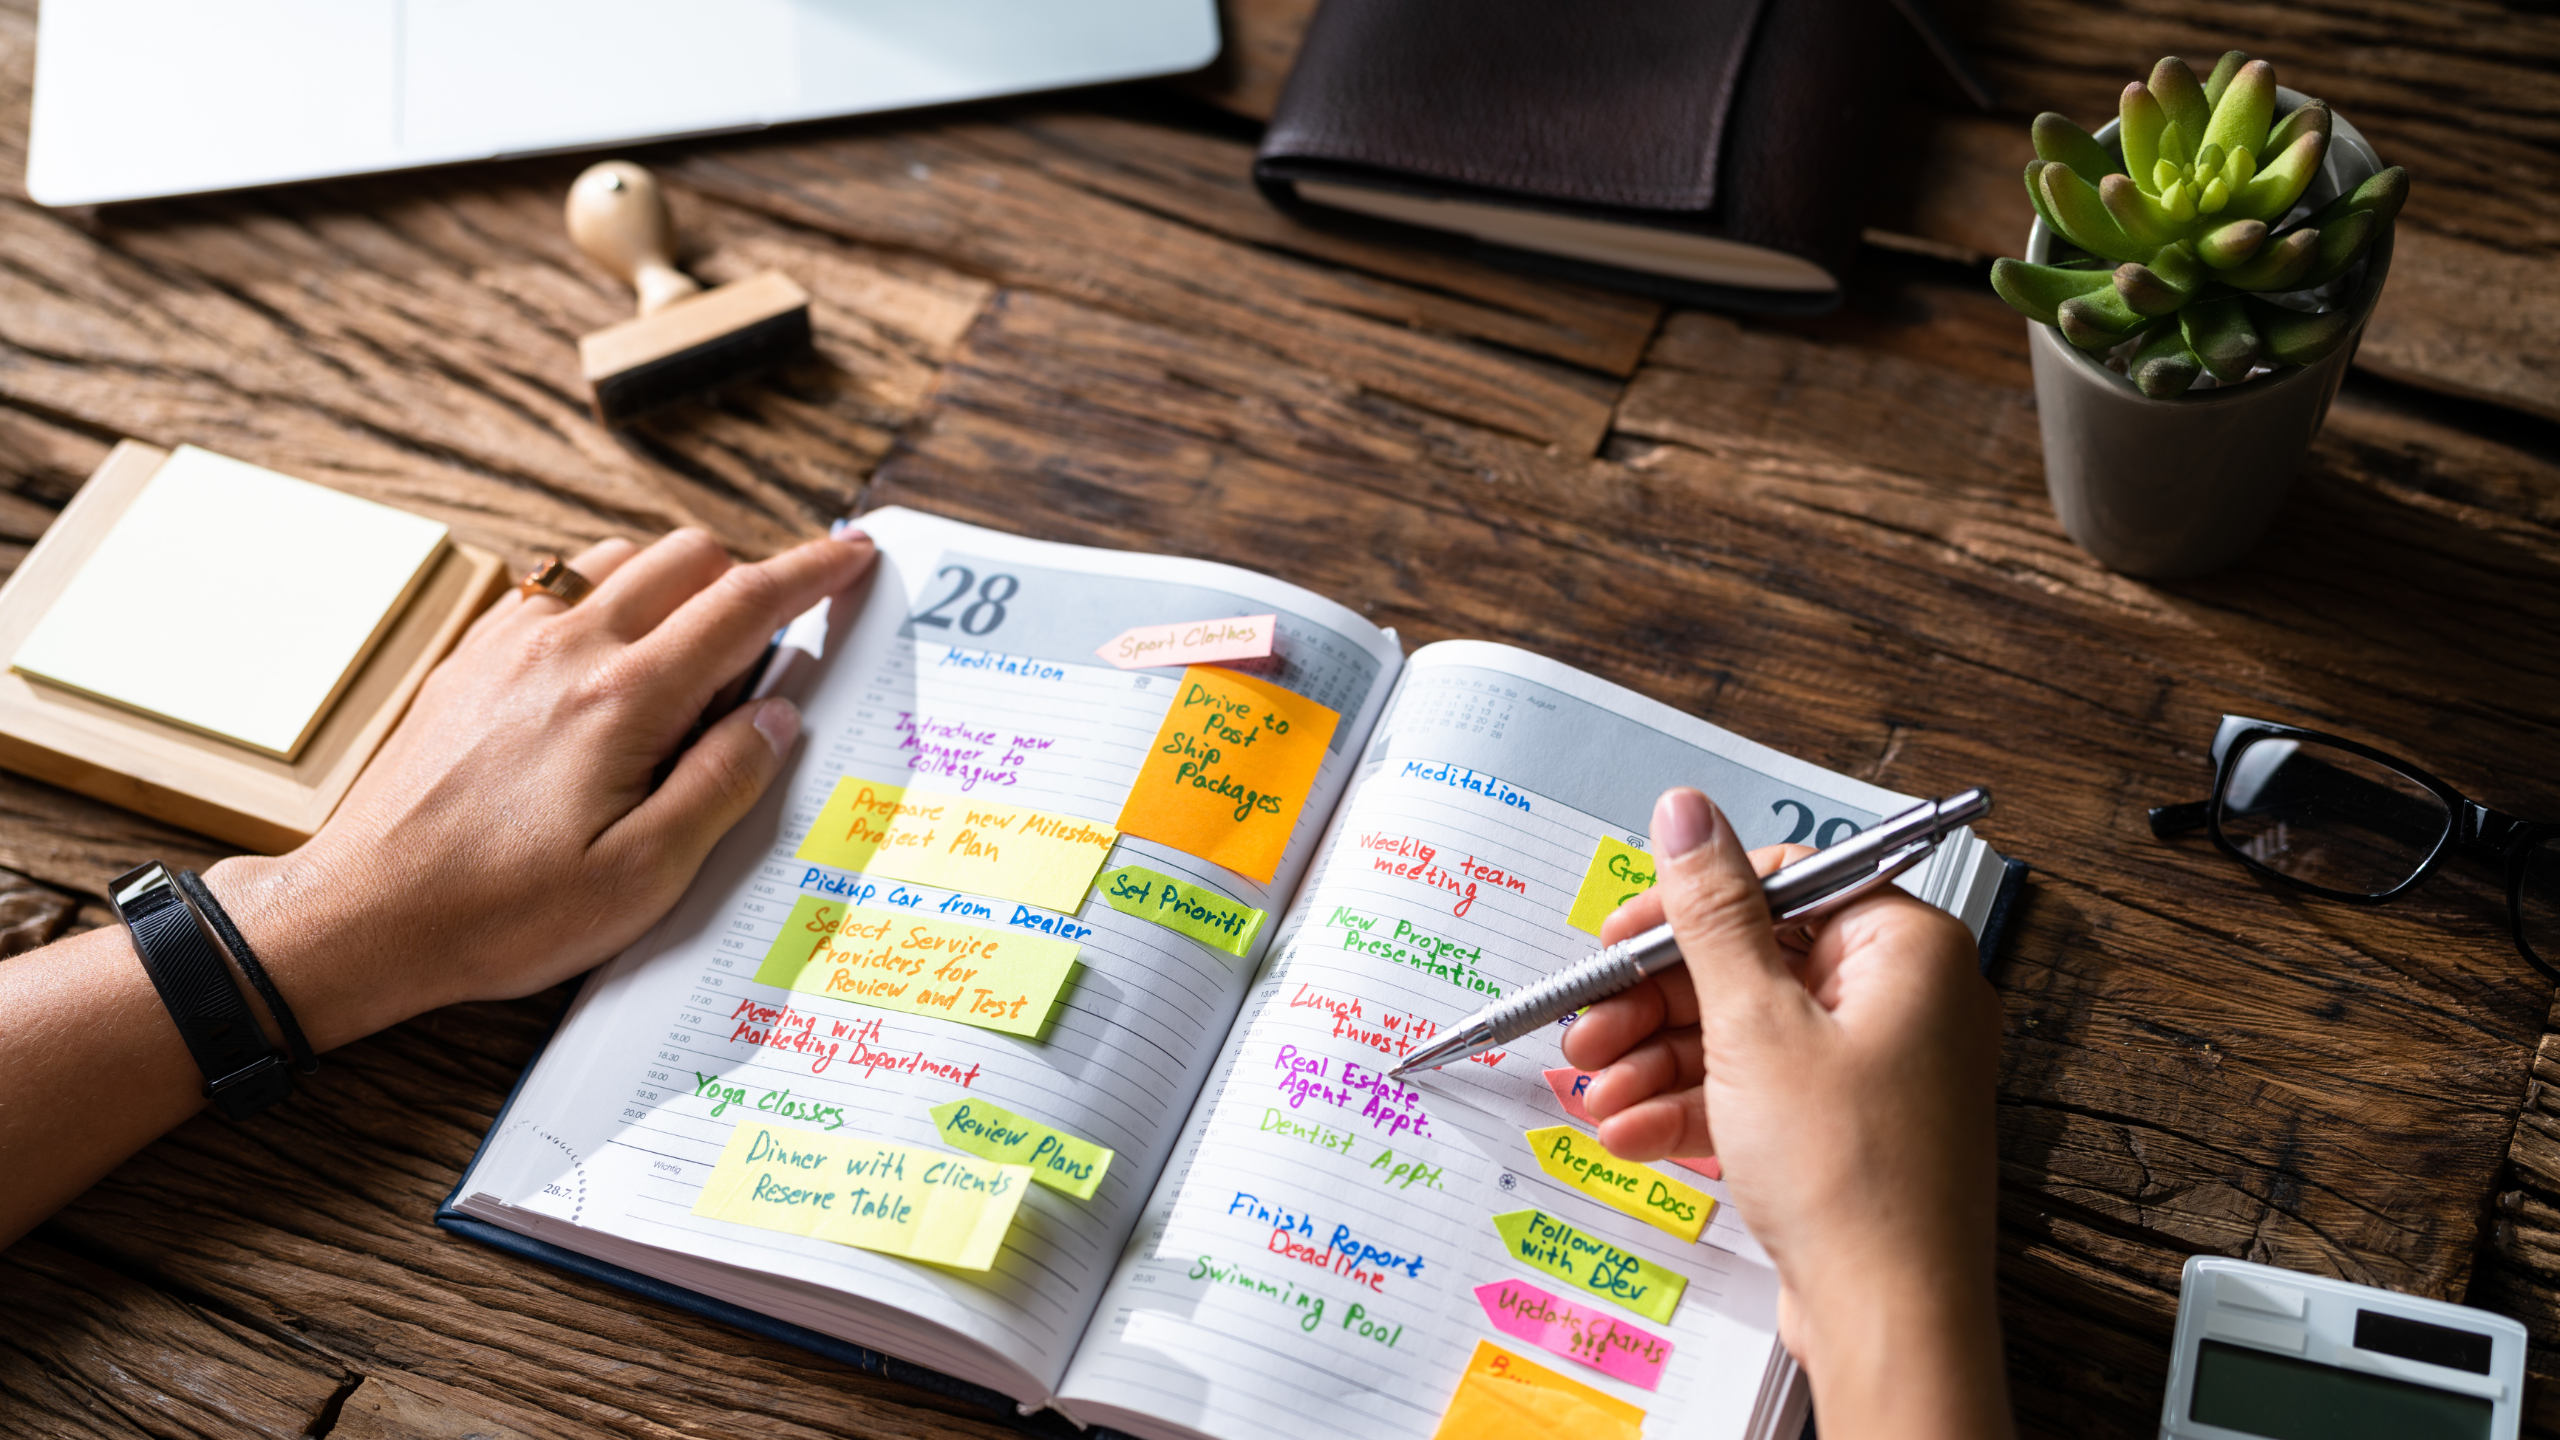 28
Sport Clothes
Meditation
Drive to
Post
Ship
Packages
Introduce new
Manager to
Colleagues
Prepare new Milestone
Project Plan
Set Prioriti
Pickup Car from Dealer
Select Service
Providers for
Review and Test
Meeting with
Marketing Department
Yoga Classes
Review Plans
Dinner with Clients
Reserve Table
17.00
17.30
18.00
18.30
19.00
19.30
20.00
Wichtig
28.7.
August
29
Meditation
Weekly team
meeting
Got
New Project
Presentation
Lunch with
Real Estate
Agent Appt.
Dentist Appt.
Prepare Docs
Finish Report
Deadline
Follow up
with Dev
Swimming Pool
Update Charts
!!!